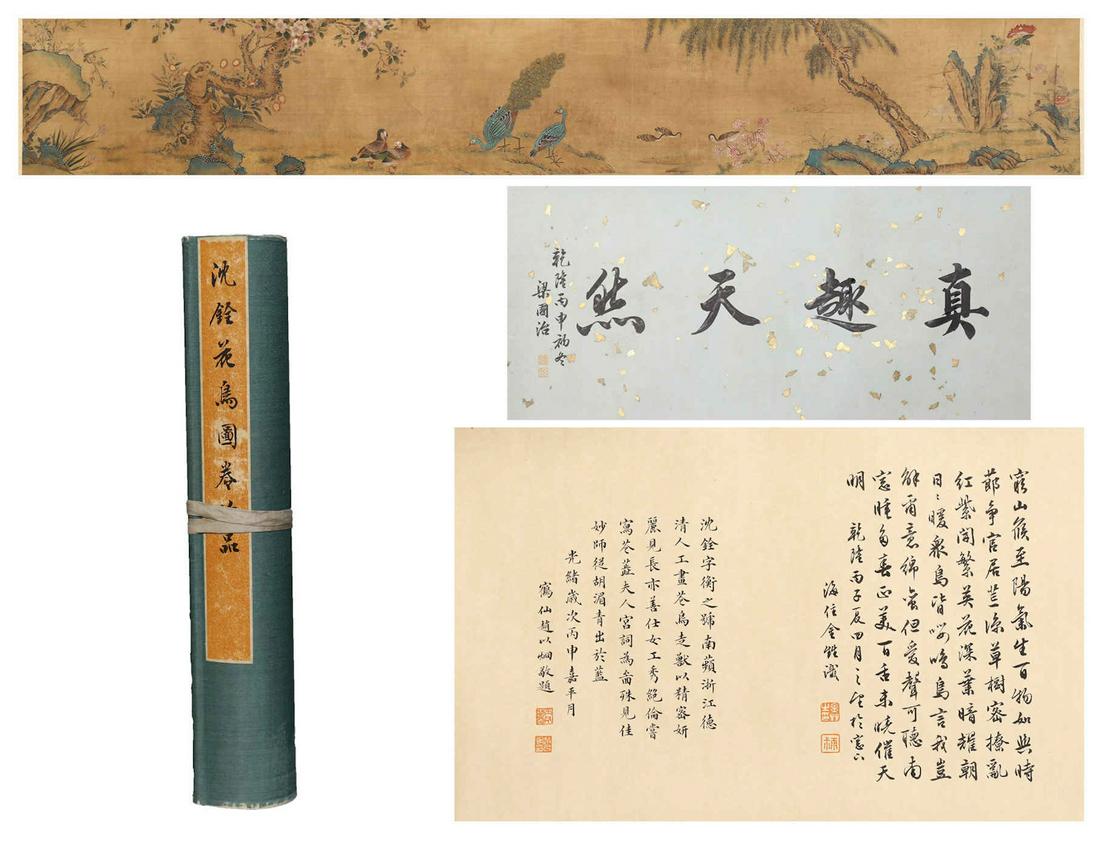 沈銓花鳥圖卷品
真趣天然
乾隆丙申初冬
梁國治
窮山候至陽氣生百物如與時
節爭官居荒涼草樹密撩亂
紅紫開繁英花深葉暗耀朝
日々暖衆鳥皆嚶鳴鳥言我豈
解爾意綿蠻但愛聲可聽南
窗睡多春正美百舌未曉催天
明 乾隆丙子夏四月之望於窗下
海住金甡識
沈銓字衡之號南蘋浙江德
清人工畫花鳥走獸以精密妍
麗見長亦善仕女工秀絕倫嘗
寫花蕊夫人宮詞為啚殊見佳
妙師從胡湄青出於藍
光緒歲次丙申嘉平月
鶴仙趙以炯敬題